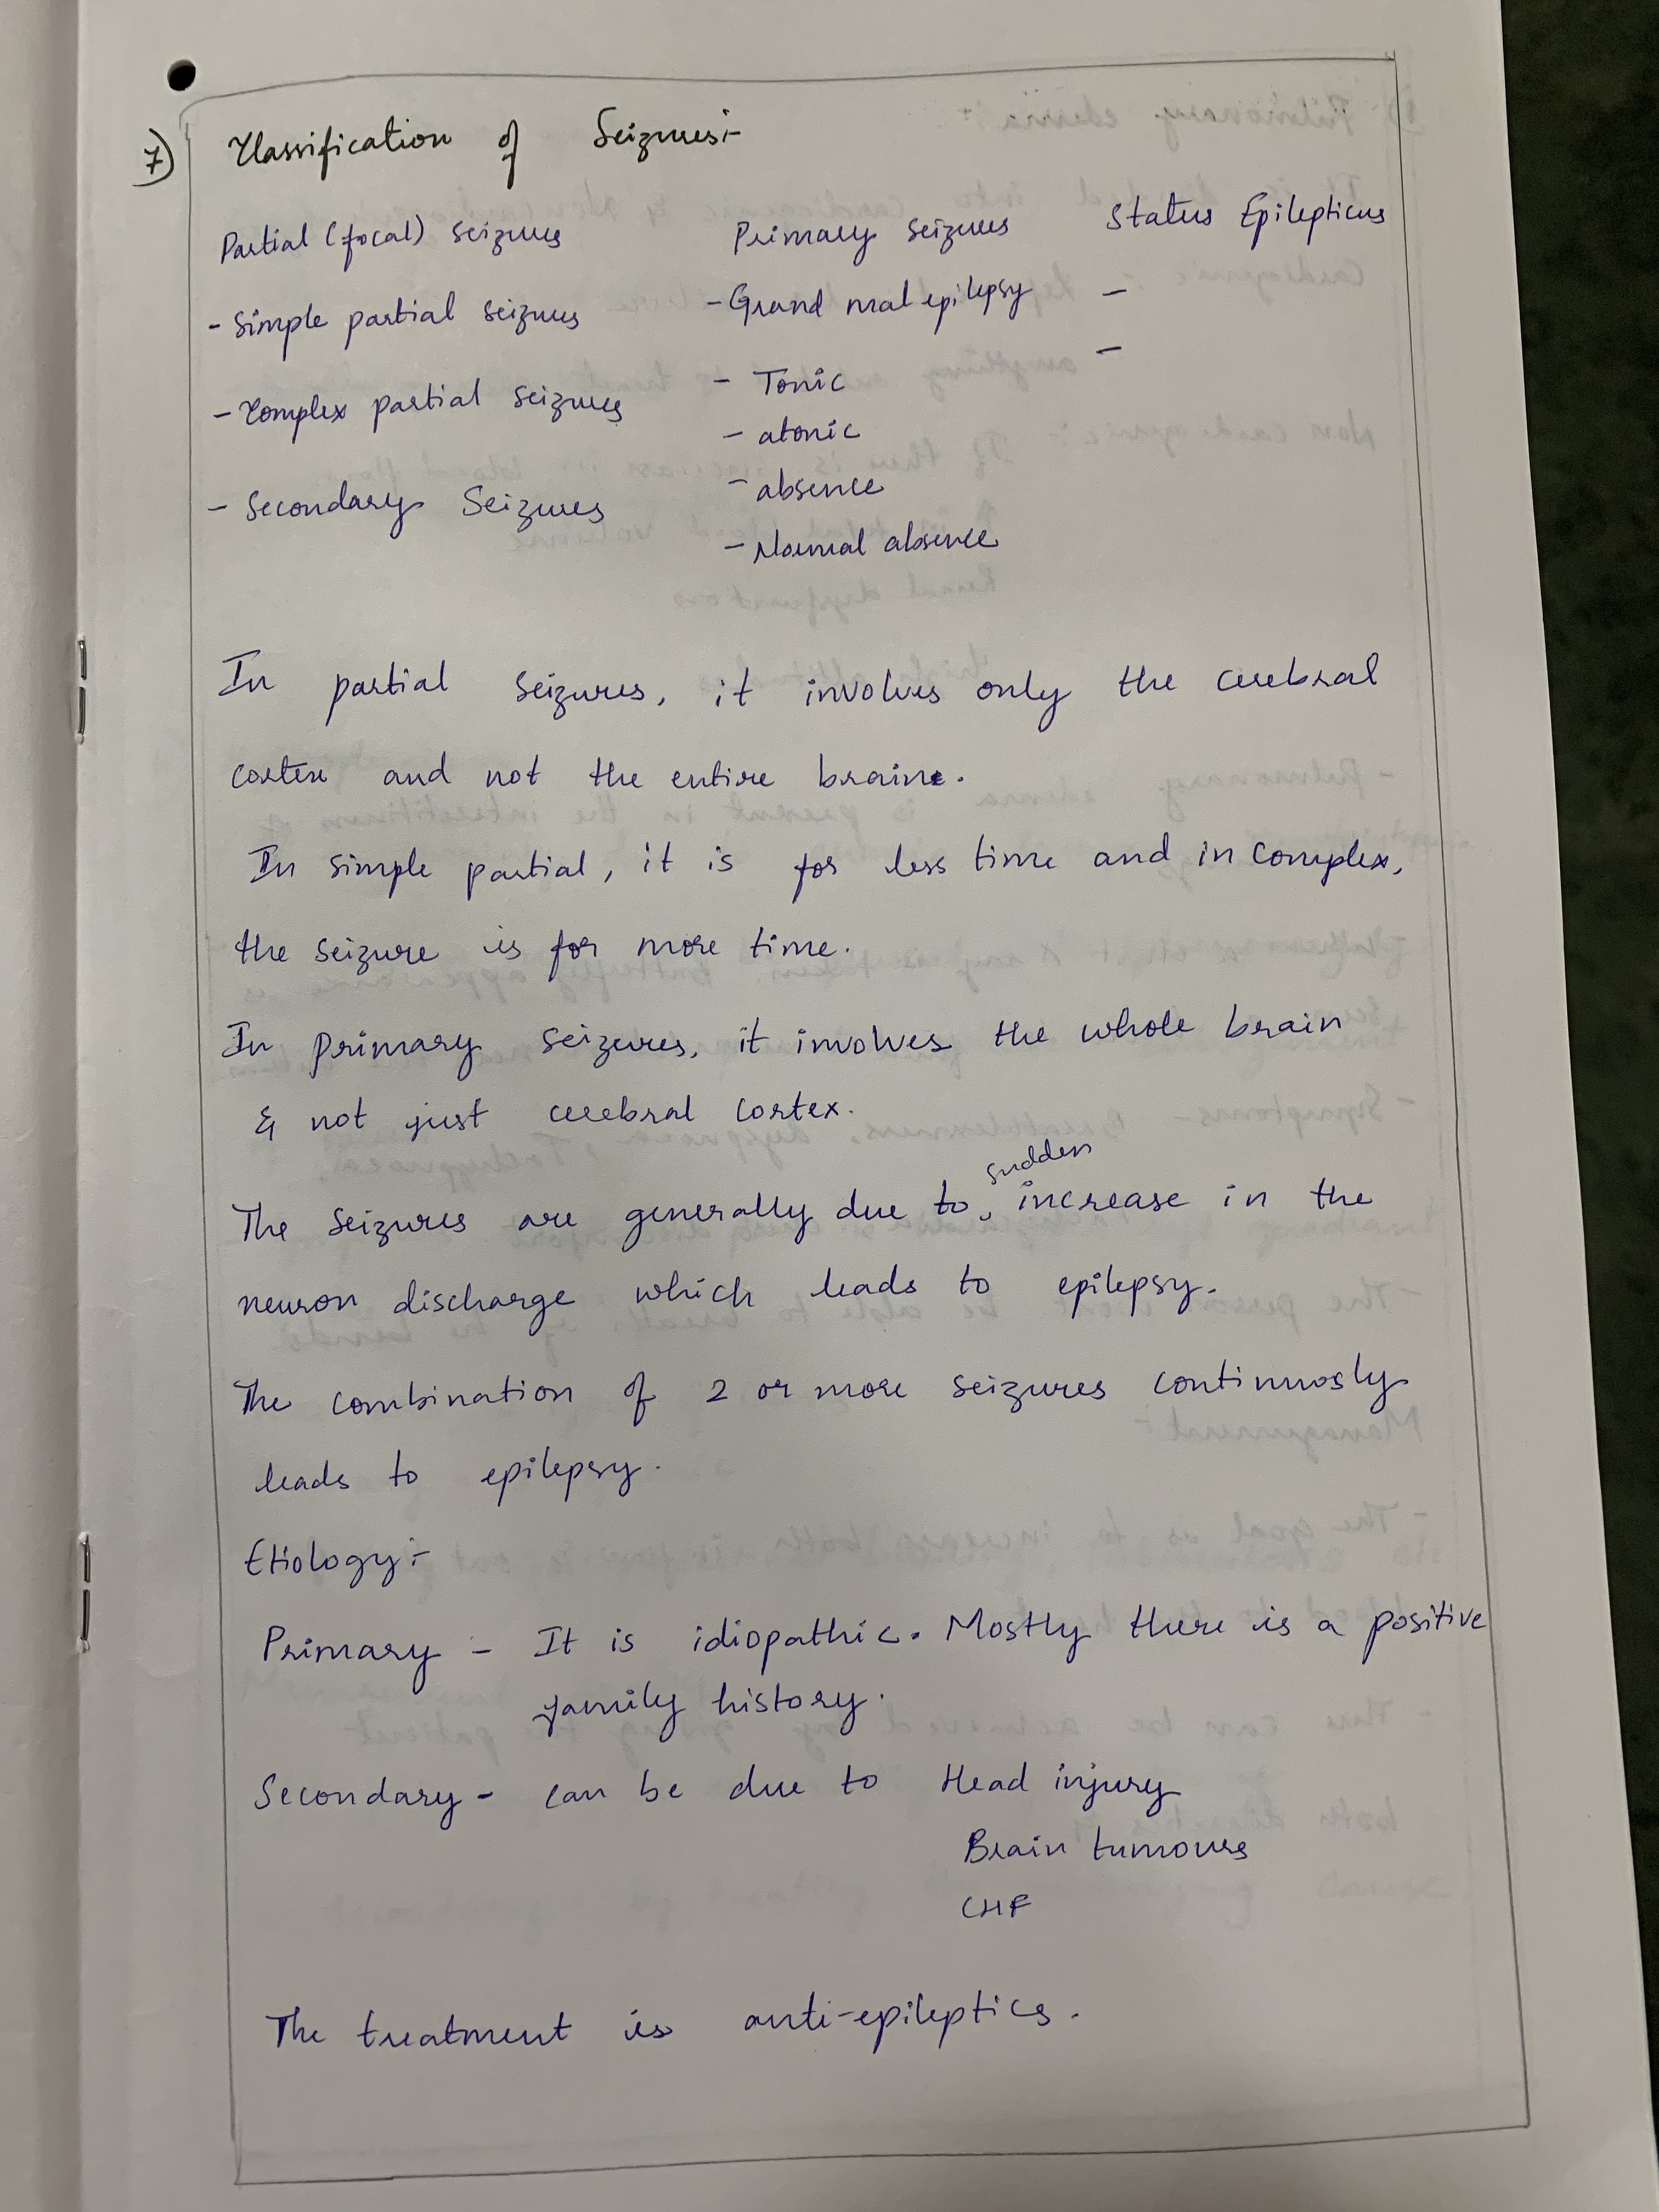 7) Classification of Seizures:-
Partial (focal) seizures Primary seizures Status Epilepticus
- Simple partial seizures - Grand mal epilepsy -
- Complex partial seizures - Tonic -
- atonic
- Secondary Seizures - absence
- Normal absence
In partial seizures, it involves only the cerebral
cortex and not the entire brain.
In simple partial, it is for less time and in complex,
the seizure is for more time.
In primary seizures, it involves the whole brain
& not just cerebral cortex.
The seizures are generally due to sudden increase in the
neuron discharge which leads to epilepsy.
The combination of 2 or more seizures continuosly
leads to epilepsy.
Etiology:-
Primary - It is idiopathic. Mostly there is a positive
family history.
Secondary - can be due to Head injury
Brain tumours
CHF
The treatment is anti-epileptics.